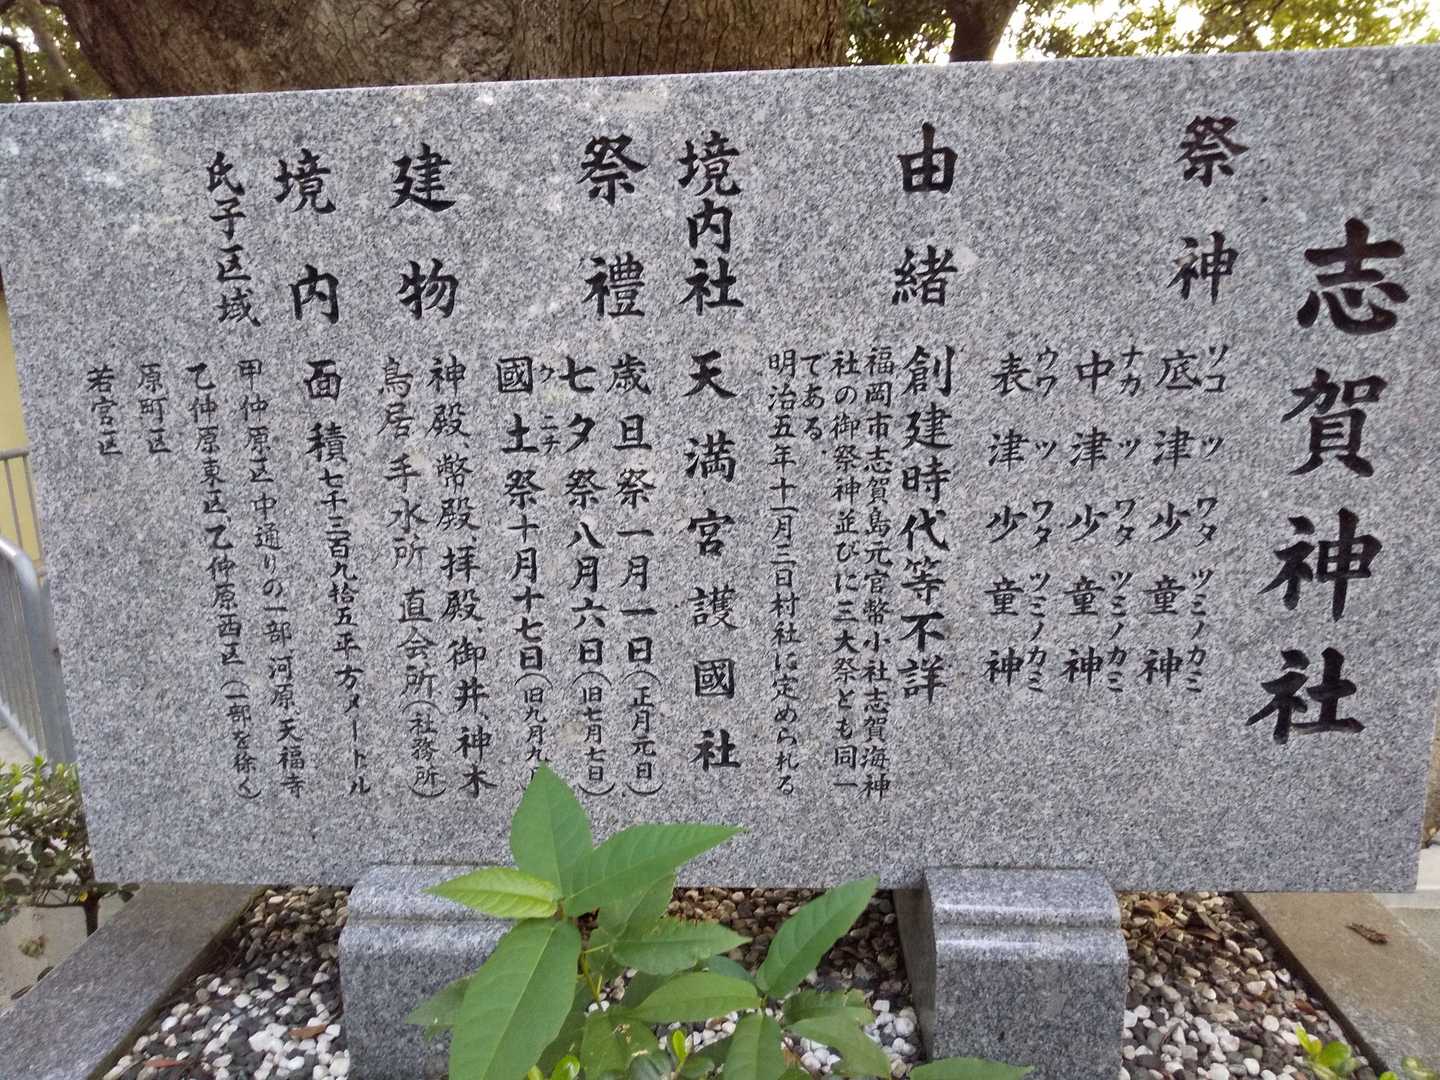 志賀神社
祭神
ソコツワタツミノカミ
底津少童神
ナカツワタツミノカミ
中津少童神
ウワツワタツミノカミ
表津少童神
由緒
創建時代等不詳
福岡市志賀島元官幣小社志賀海神
社の御祭神並びに三大祭とも同一
である
明治五年十一月三日村社に定められる
境内社 天満宮 護國社
祭禮
歳旦祭一月一日(正月元日)
七夕祭八月六日(旧七月七日)
クニチ
國土祭十月十七日(旧九月九
建物
神殿、幣殿、拝殿、御井、神木
鳥居 手水所 直会所(社務所)
境内 面積七千三百九拾五平方メートル
氏子区域
甲仲原区中通りの一部 河原、天福寺
乙仲原東区、乙仲原西区(一部を除く)
原町区
若宮区